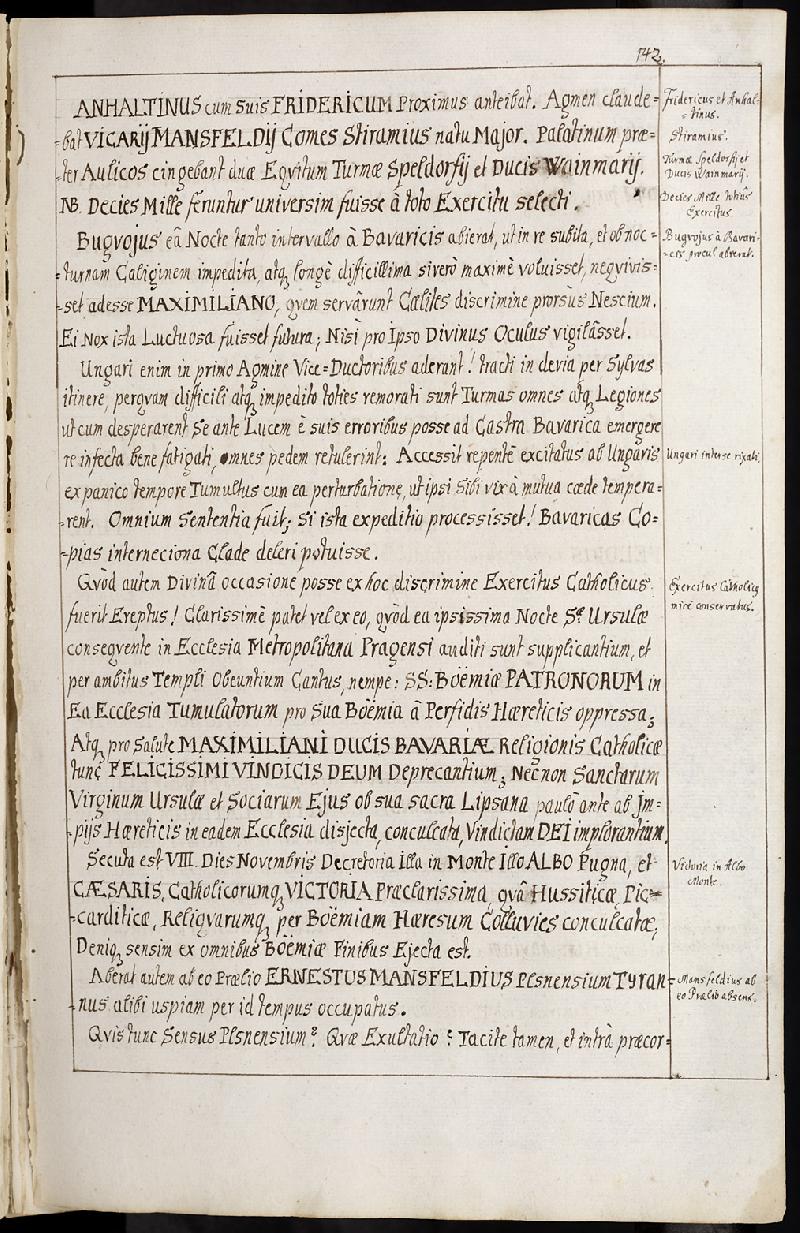 142.
ANHALTINUS cum Suis FRIDERICUM Proximus anteibat. Agmen claude=
=bat VICARIJ MANSFELDIJ Comes Stiramius natu Major. Palatinum præ=
=ter Aulicos cingebant duæ Eqvitum Turmæ Speldorfij et Ducis Wainmarij.
NB. Decies Mille feruntur universim fuisse à toto Exercitu selecti.
Bugvojus eâ Nocte tanto intervallo à Bavaricis abierat, ut in re subita, et ob noc=
=turnam Caliginem impedita, atq longè difficillima si verò maximè voluisset, neqvivis=
=set adesse MAXIMILIANO, qvem servârunt Cælites discrimine prorsùs Nescium.
Ei Nox ista Luctuosa fuisset futura; Nisi pro Ipso Divinus Oculus vigilâsset.
Ungari enim in primo Agmine Vice=Ductoribus aderant! tracti in devia per Sylvas
itinere, perqvam difficili atq impedito toties remorati sunt Turmas omnes atq Legiones
ut cum desperarent Se ante Lucem è suis erroribus posse ad Castra Bavarica emergere
re infecta bene fatigati, omnes pedem retulerint: Accessit repentè excitatus ab Ungaris
ex panico tempore Tumultus cum ea perturbatione, ut ipsi Sibi vix à mutua cæde tempera=
=rent. Omnium Sententia fuit; Si ista expeditio processisset! Bavaricas Co=
=pias interneciona Clade deleri potuisse.
Qvòd autem Divinâ occasione posse ex hoc discrimine Exercitus Catholicus
fuerit Ereptus! Clarissimè patet vel ex eo, qvòd ea ipsissima Nocte Sæ Ursulæ
conseqvente in Ecclesia Metropolitana Pragensi auditi sunt supplicantium, et
per ambitus Templi Obeuntium Cantus, nempe: SS: Boëmiæ PATRONORUM in
Ea Ecclesia Tumulatorum pro Sua Boëmia à Perfidis Hæreticis oppressa;
Atq pro Salute MAXIMILIANI DUCIS BAVARIÆ Religionis Catholicæ
tunc FELICISSIMI VINDICIS DEUM Deprecantium; Nec non Sanctarum
Virginum Ursulæ et Sociarum Ejus ob sua sacra Lipsana paulò ante ab Im=
=pijs Hæreticis in eadem Ecclesia disjecta, conculcata, Vindictam DEI implorantium.
Secuta est VIII. Dies Novembris Decretoria illa in Monte Illo ALBO Pugna, et
CÆSARIS, Catholicorumq VICTORIA Præclarissima, qvâ Hussiticæ, Pic=
=carditicæ, Reliqvarumq per Boëmiam Hæresum Colluvies conculcatæ,
Deniq sensim ex omnibus Boëmiæ Finibus Ejecta est.
Aberat autem ab eo Prælio ERNESTUS MANSFELDIUS Plsnensium Tyran=
=nus alibi uspiam per id tempus occupatus.
Qvis tunc Sensus Plsnensium? Qvæ Exultatio? Tacite tamen, et intrà præcor=
Fridericus et Anhal=
=tinus.
Stiramius.
Turmæ Speldorfij et
Ducis Wainmarij.
Decies Mille totius
Exercitus
Bugvojus à Bavari=
=cis procul aberat.
Ungari inter se rixati.
Exercitus Catholicus
mirè conservatus.
Victoria in Albo
Monte.
Mansfeldius ab
eo Prælio absens.